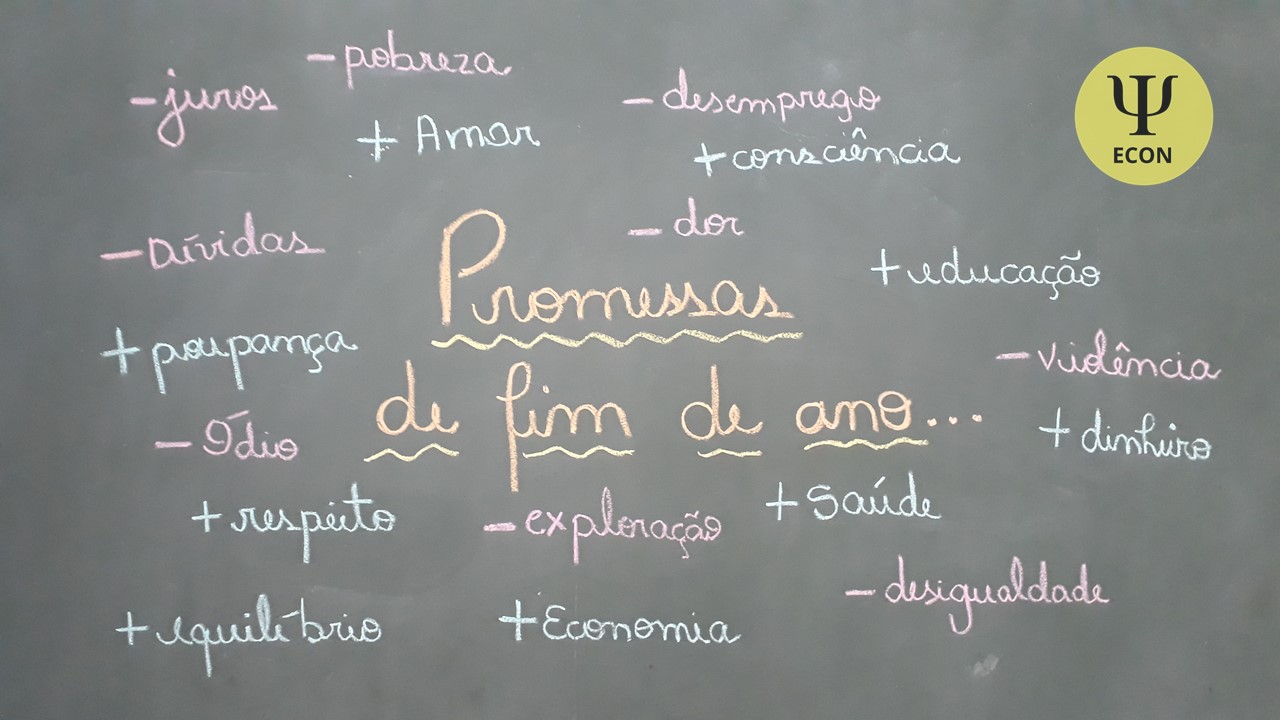 - pobreza
- juros
- desemprego
+ Amar
+ consciência
Ψ
ECON
- dor
- Dívidas
+ educação
Promessas
+ poupança
- violência
de fim de ano...
- Ódio
+ dinheiro
+ respeito
- exploração
+ Saúde
- desigualdade
+ equilíbrio
+ Economia